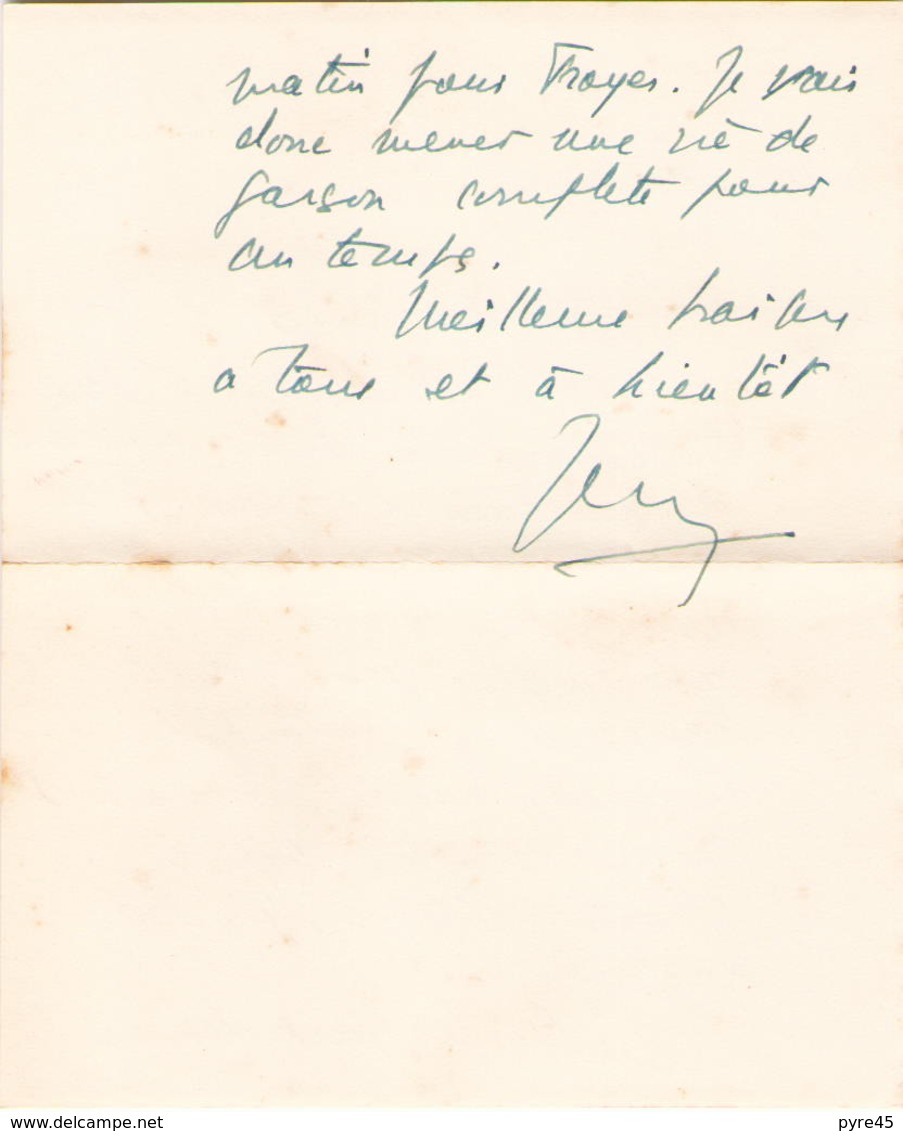 matin pour Troyes. Je vais
donc mener une vie de
garson complete pour
un temps.
Meilleure baisers
a tous et à bientôt
www.delcampe.net
pyre45